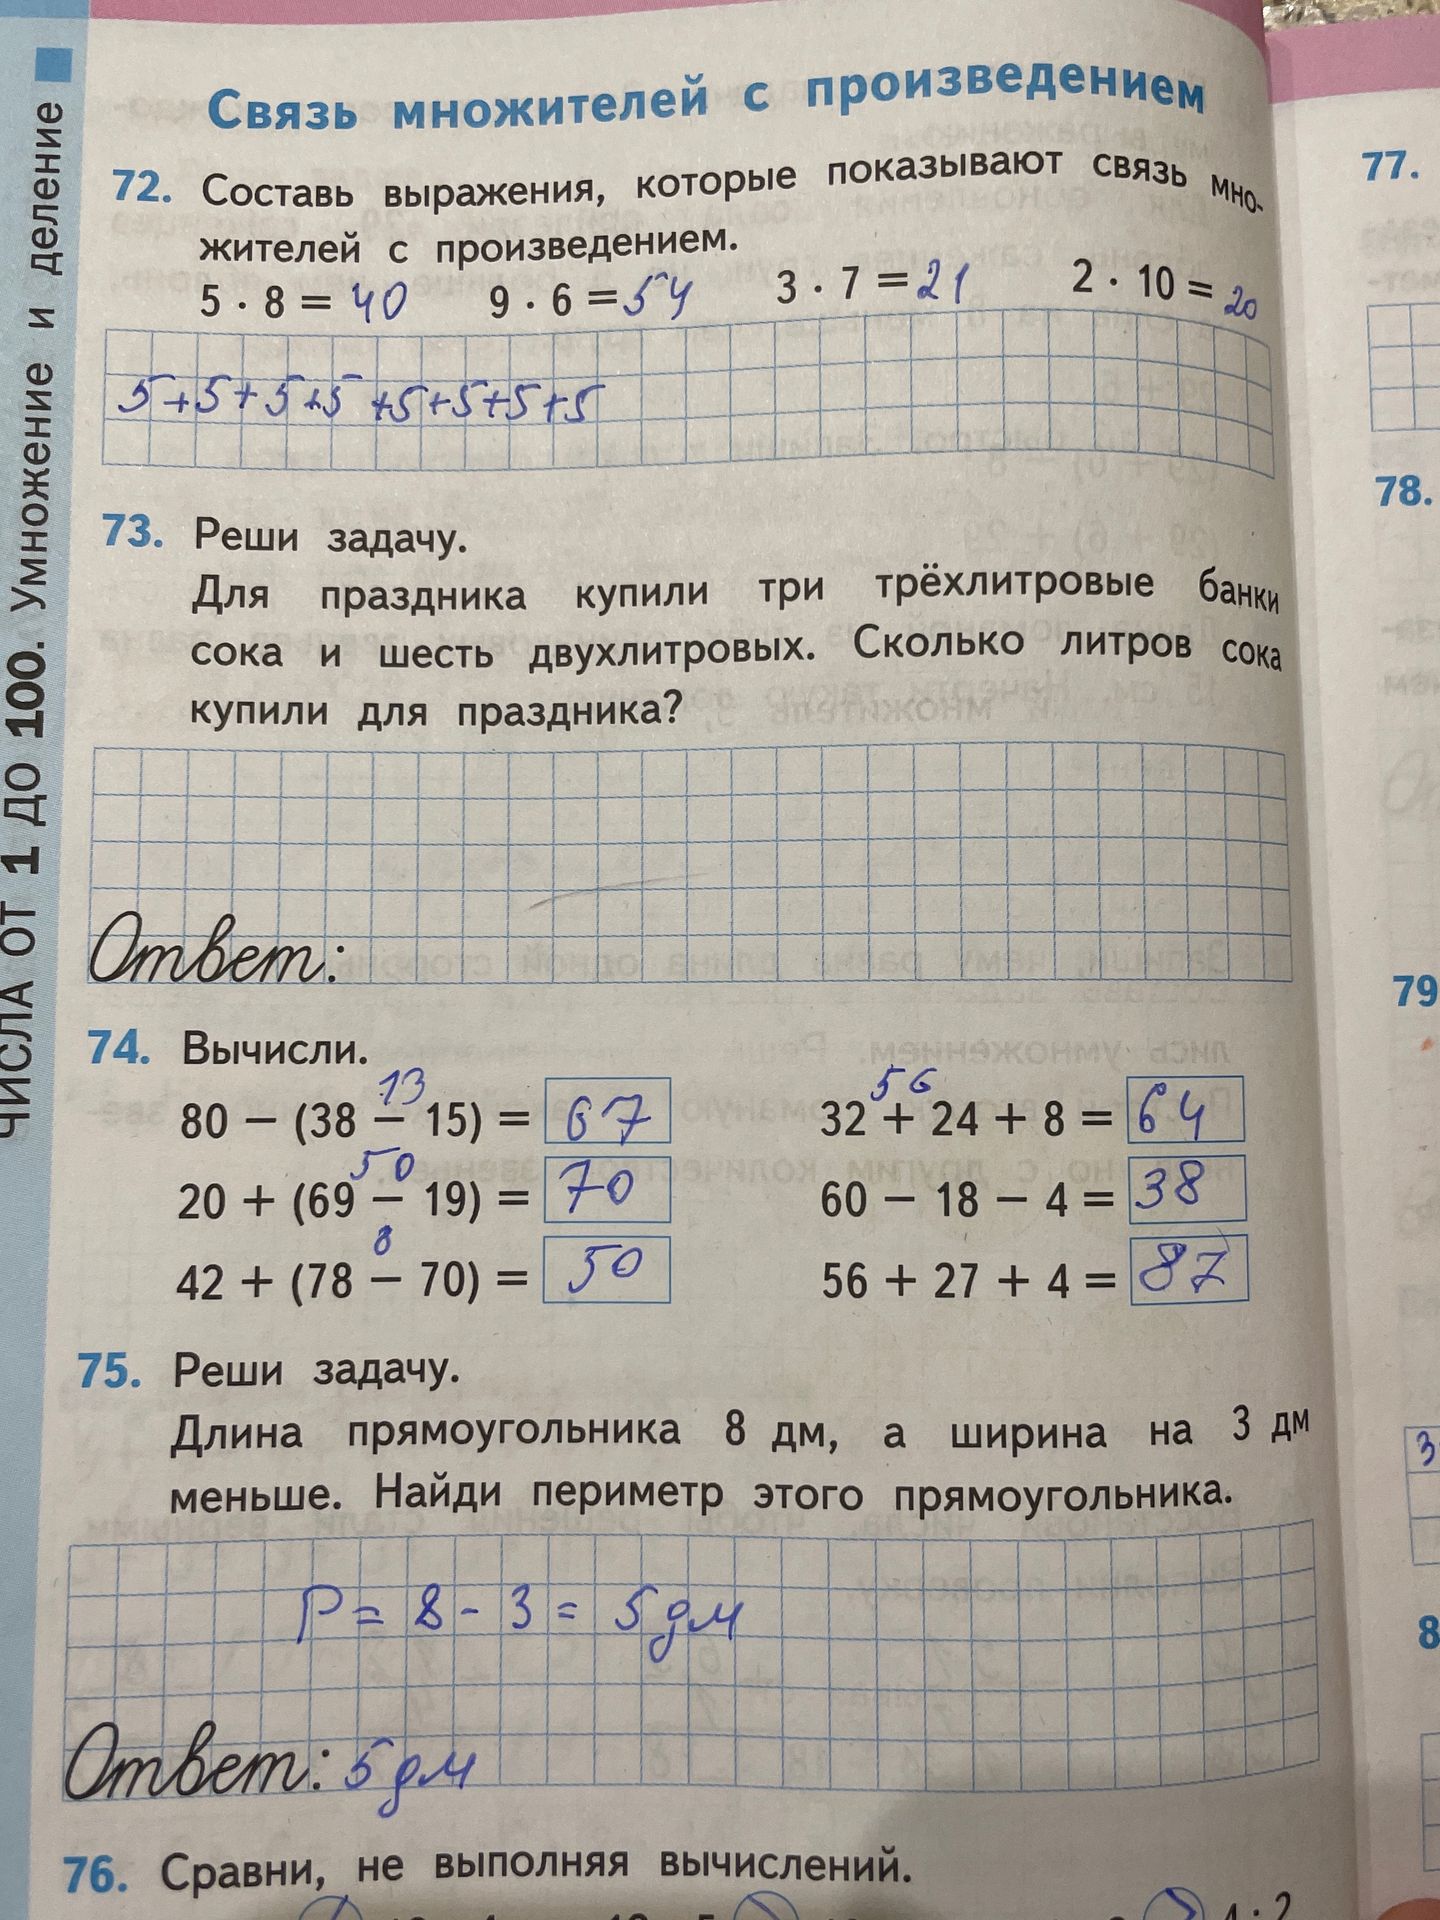 ЧИСЛА ОТ 1 ДО 100. Умножение и деление
Связь множителей с произведением
72. Составь выражения, которые показывают связь мно-
жителей с произведением.
5 · 8 = 40 9 · 6 = 54 3 · 7 = 21 2 · 10 = 20
5+5+5+5+5+5+5+5
73. Реши задачу.
Для праздника купили три трёхлитровые банки
сока и шесть двухлитровых. Сколько литров сока
купили для праздника?
Ответ:
74. Вычисли.
13 56
80 − (38 − 15) = 67 32 + 24 + 8 = 64
50
20 + (69 − 19) = 70 60 − 18 − 4 = 38
8
42 + (78 − 70) = 50 56 + 27 + 4 = 87
75. Реши задачу.
Длина прямоугольника 8 дм, а ширина на 3 дм
меньше. Найди периметр этого прямоугольника.
P = 8 - 3 = 5 дм
Ответ: 5 дм
76. Сравни, не выполняя вычислений.
77.
78.
79
3
8